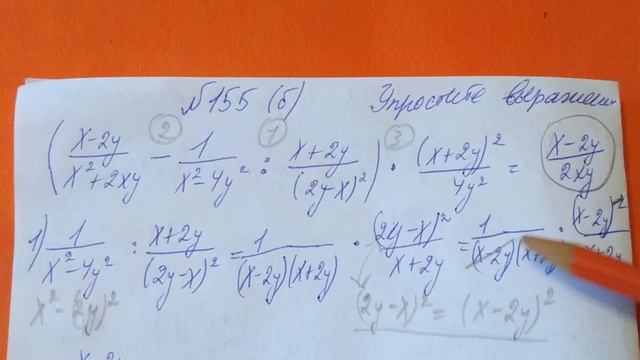 №155 (б) Упростите выражени
( (x-2y)/(x²+2xy) - 1/(x²-4y²) : (x+2y)/(2y-x)² ) · (x+2y)²/4y² = (x-2y)/2xy
② ① ③
1) 1/(x²-4y²) : (x+2y)/(2y-x)² = 1/((x-2y)(x+2y)) · (2y-x)²/(x+2y) = 1/((x-2y)(x+ · (x-2y)²/
x²-(2y)² (2y-x)² = (x-2y)²